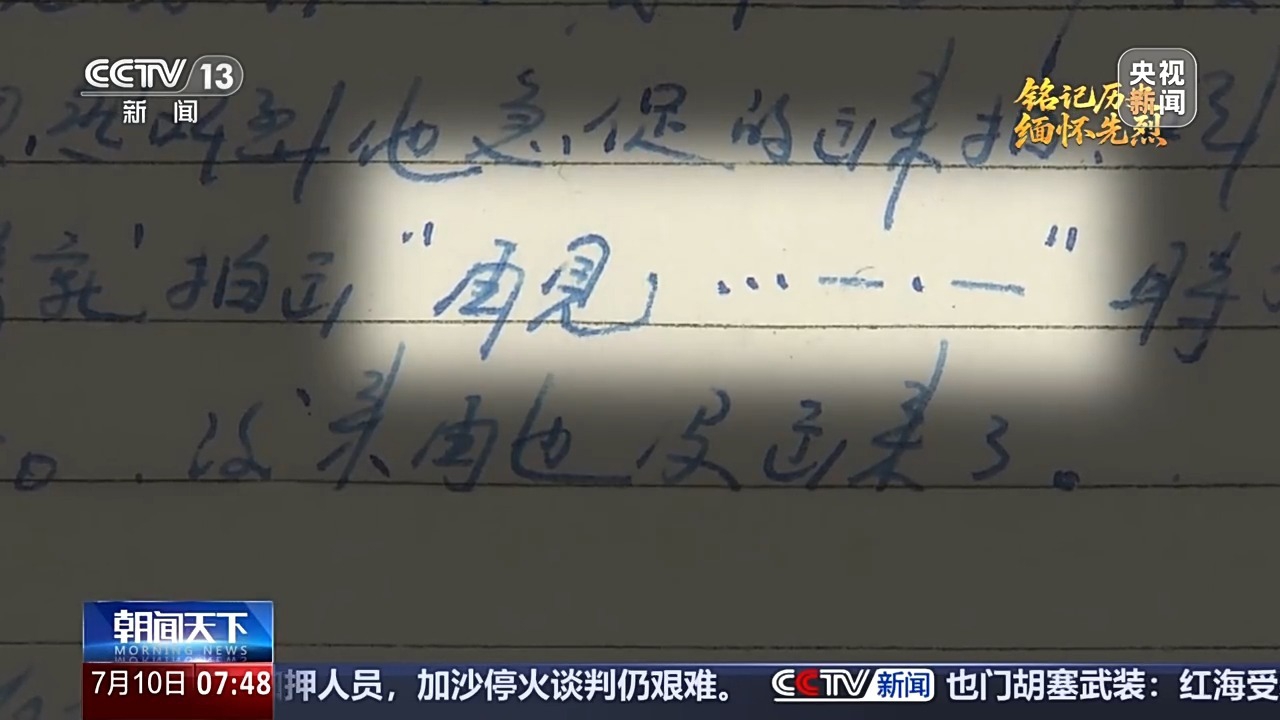 CCTV 13
新闻
央视
新闻
铭记历史
缅怀先烈
听到他急促的过来拍
就拍过“再見，…—·—”時
。后来再也没过来了。
朝闻天下
MORNING NEWS
7月10日 07:48
押人员，加沙停火谈判仍艰难。 CCTV新闻 也门胡塞武装：红海受